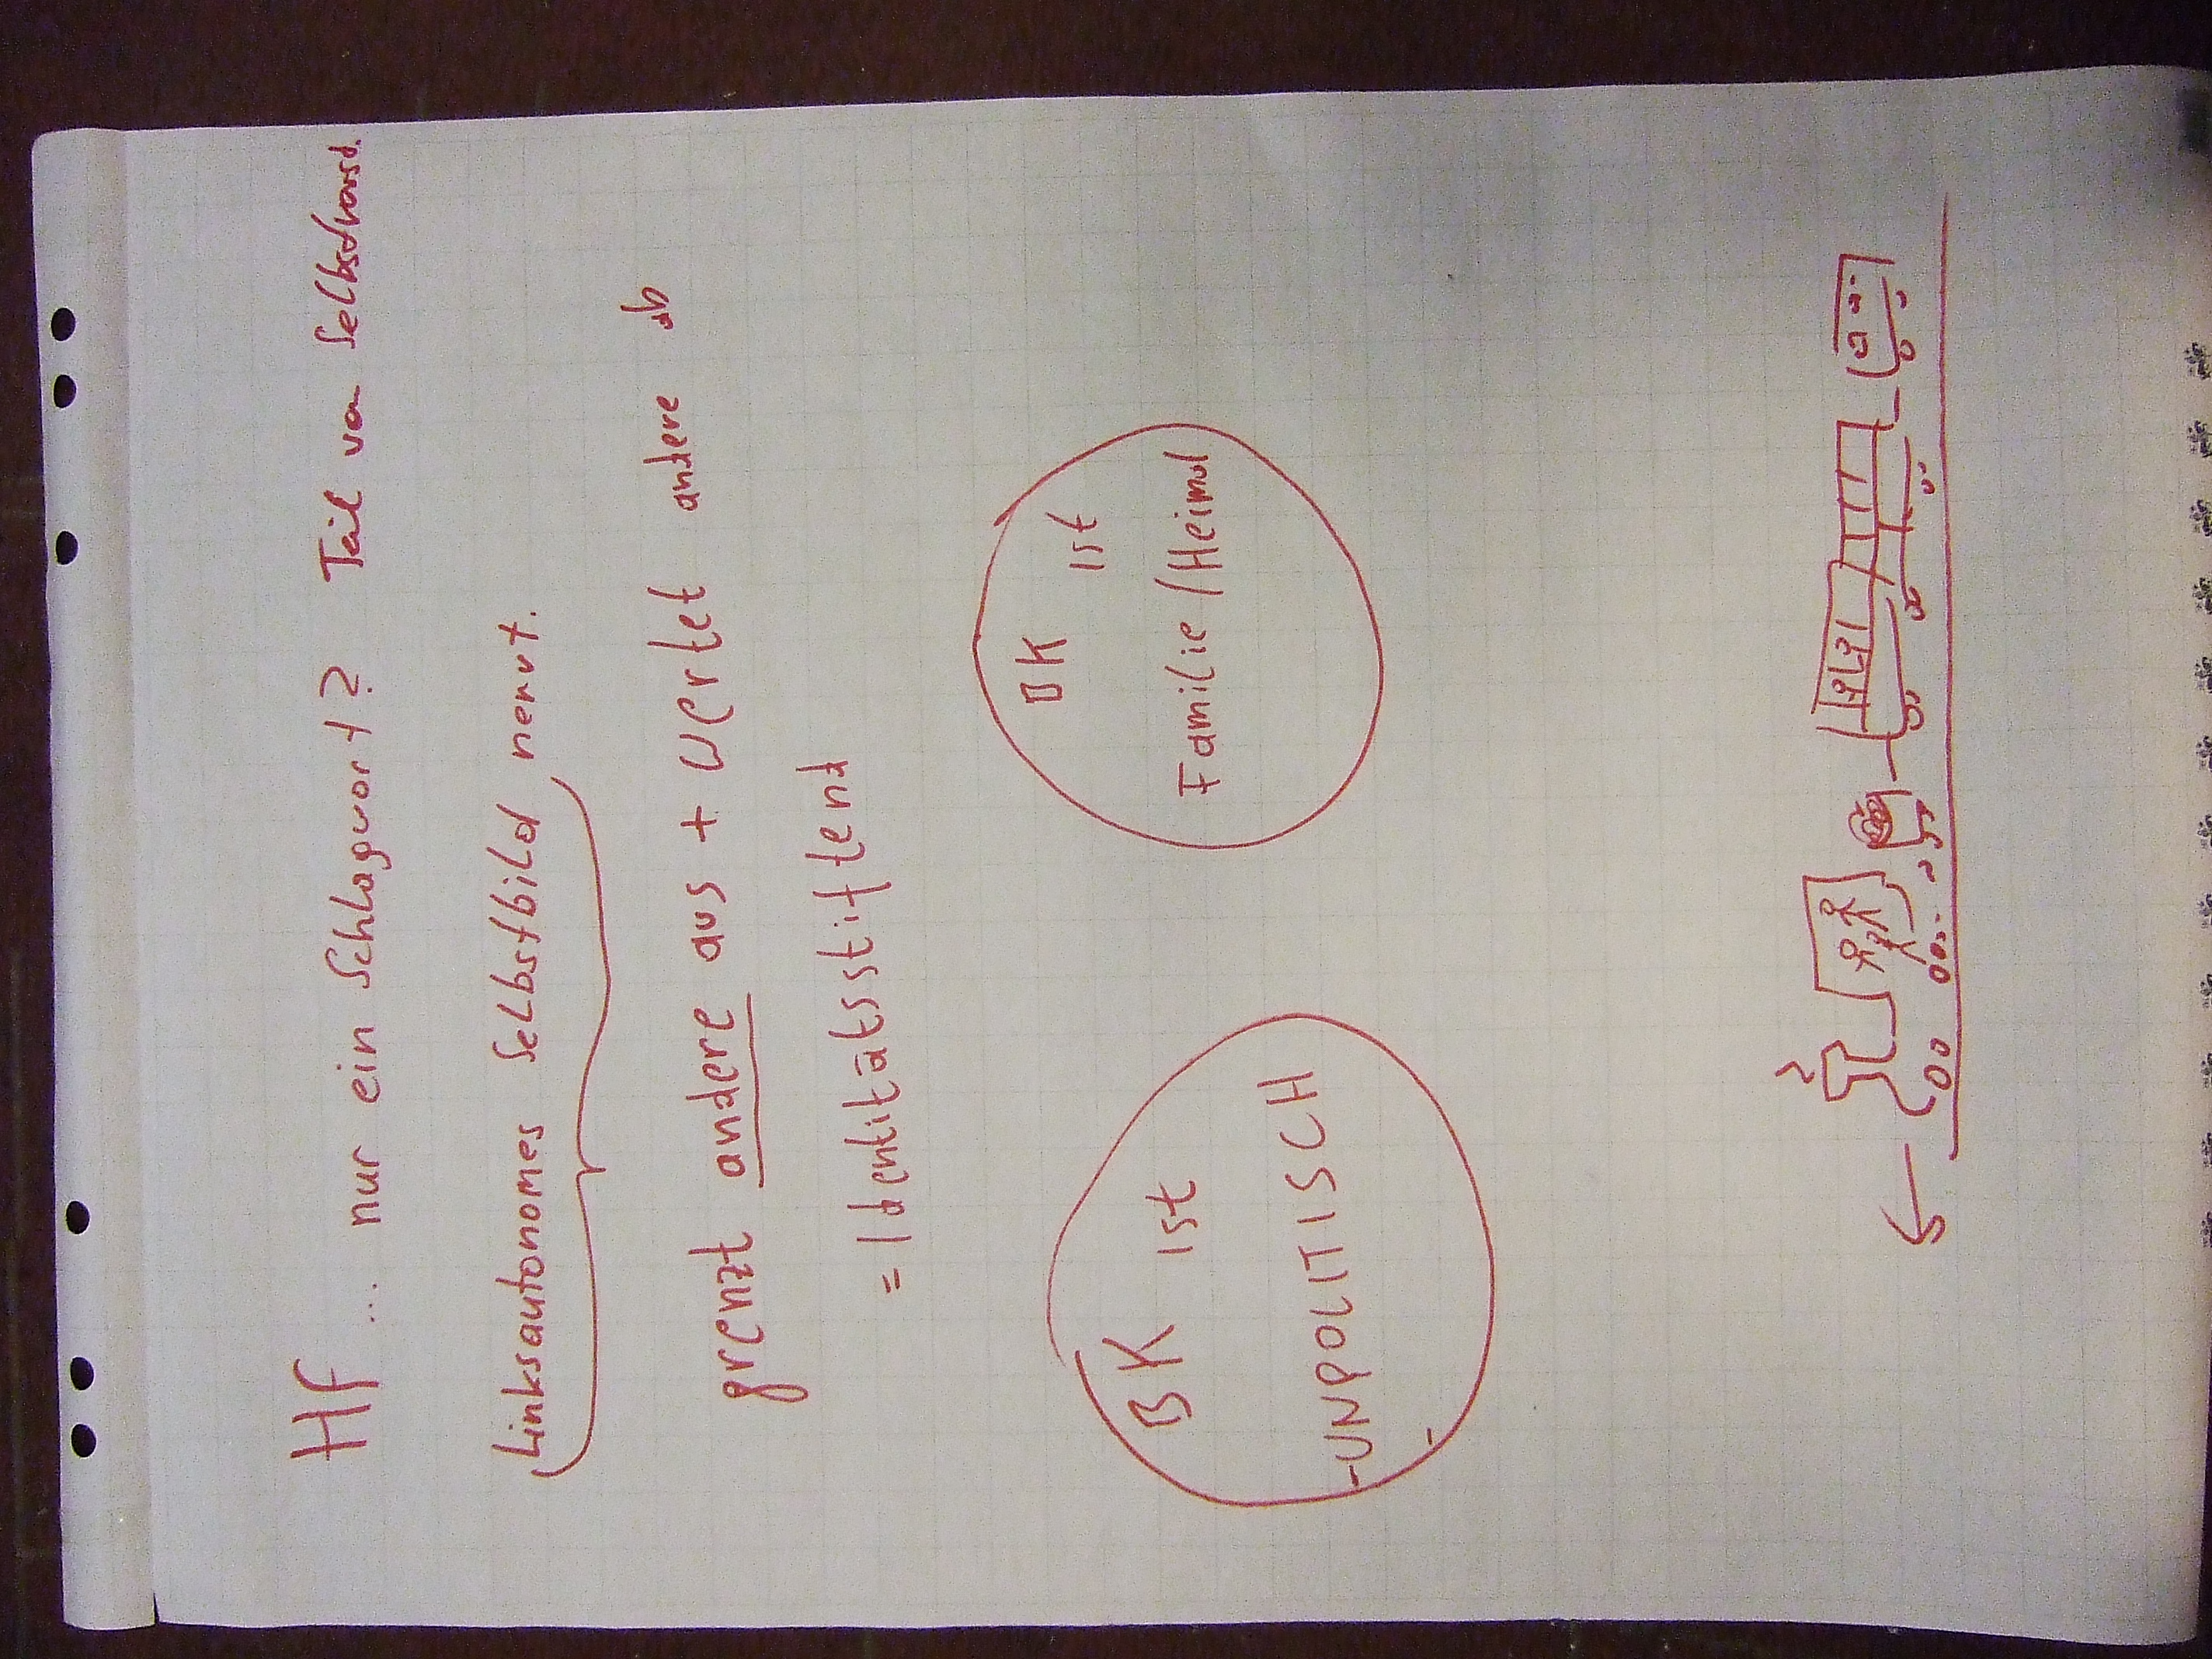 HF ... nur ein Schlagwort? Teil von Selbstverst.
Linksautonomes Selbstbild nervt.
grenzt andere aus + wertet andere ab
= Identitätsstiftend
BK ist
UNPOLITISCH
BK ist
Familie/Heimat